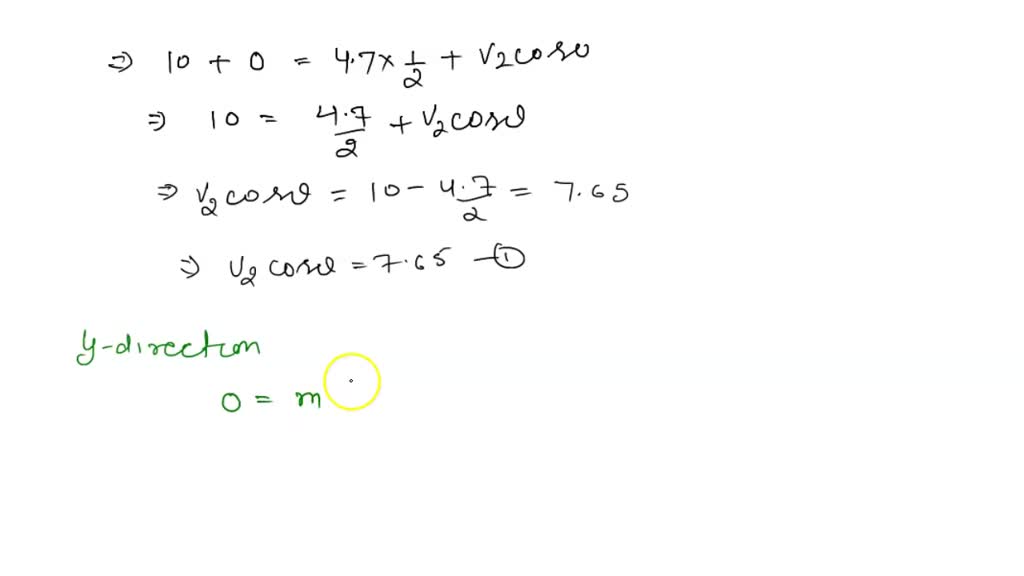 ⇒ 10 + 0 = 4.7 × 1/2 + V₂cosθ
⇒ 10 = 4.7/2 + V₂cosθ
⇒ V₂cosθ = 10 - 4.7/2 = 7.65
⇒ V₂ cosθ = 7.65 —①
y-direction
0 = m